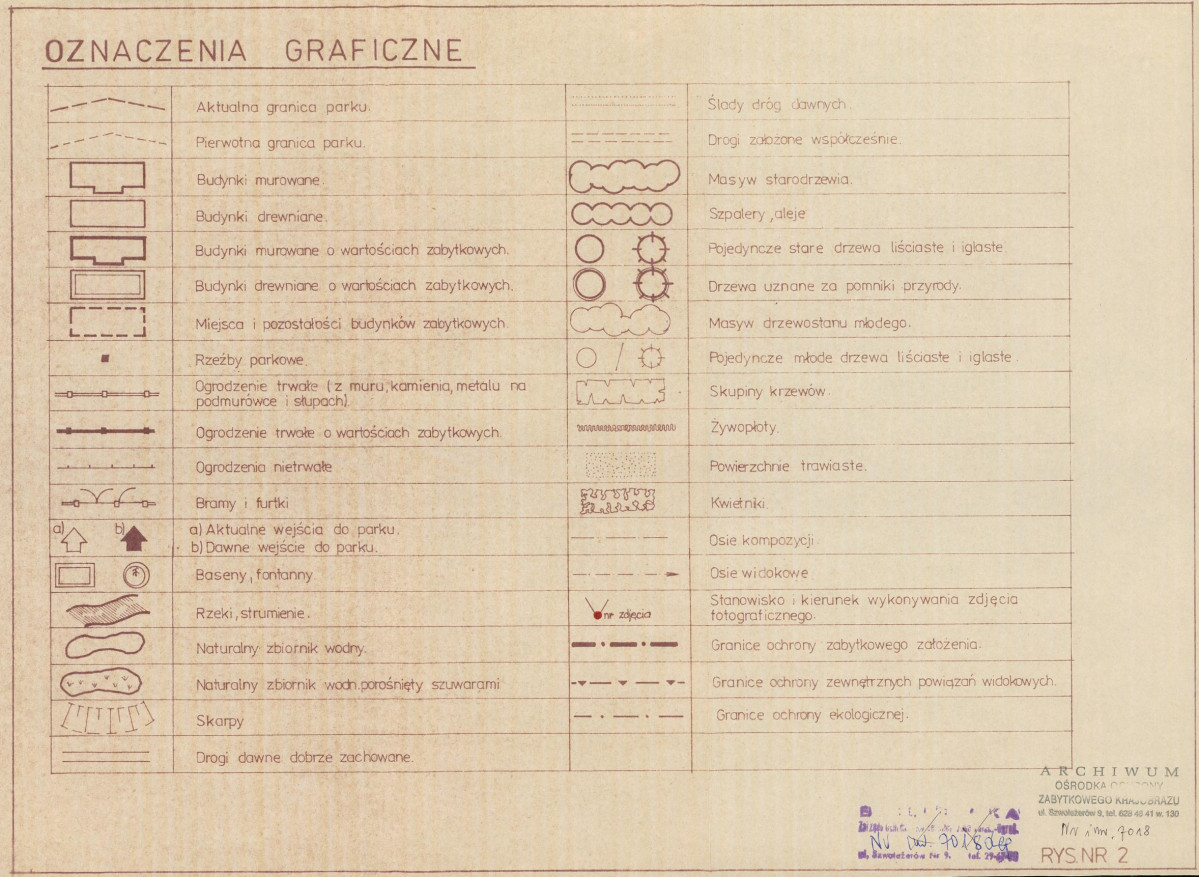 OZNACZENIA GRAFICZNE
Aktualna granica parku.
Pierwotna granica parku.
Budynki murowane.
Budynki drewniane.
Budynki murowane o wartościach zabytkowych.
Budynki drewniane o wartościach zabytkowych.
Miejsca i pozostałości budynków zabytkowych.
Rzeźby parkowe.
Ogrodzenie trwałe (z muru, kamienia, metalu na
podmurówce i słupach).
Ogrodzenie trwałe o wartościach zabytkowych.
Ogrodzenia nietrwałe
Bramy i furtki
a) b)
a) Aktualne wejścia do parku.
b) Dawne wejście do parku.
Baseny, fontanny.
Rzeki, strumienie.
Naturalny zbiornik wodny.
Naturalny zbiornik wodn. porośnięty szuwarami
Skarpy
Drogi dawne dobrze zachowane.
Ślady dróg dawnych.
Drogi założone współcześnie.
Masyw starodrzewia.
Szpalery, aleje
Pojedyncze stare drzewa liściaste i iglaste
Drzewa uznane za pomniki przyrody.
Masyw drzewostanu młodego.
Pojedyncze młode drzewa liściaste i iglaste.
Skupiny krzewów.
Żywopłoty.
Powierzchnie trawiaste.
Kwietniki.
Osie kompozycji.
Osie widokowe
nr zdjęcia
Stanowisko i kierunek wykonywania zdjęcia
fotograficznego.
Granice ochrony zabytkowego założenia.
Granice ochrony zewnętrznych powiązań widokowych.
Granice ochrony ekologicznej.
ARCHIWUM
OŚRODKA OCHRONY
ZABYTKOWEGO KRAJOBRAZU
ul. Szwoleżerów 9, tel. 628 48 41 w. 130
Nr inw. 7018
RYS. NR 2
ul. Szwoleżerów Nr 9.